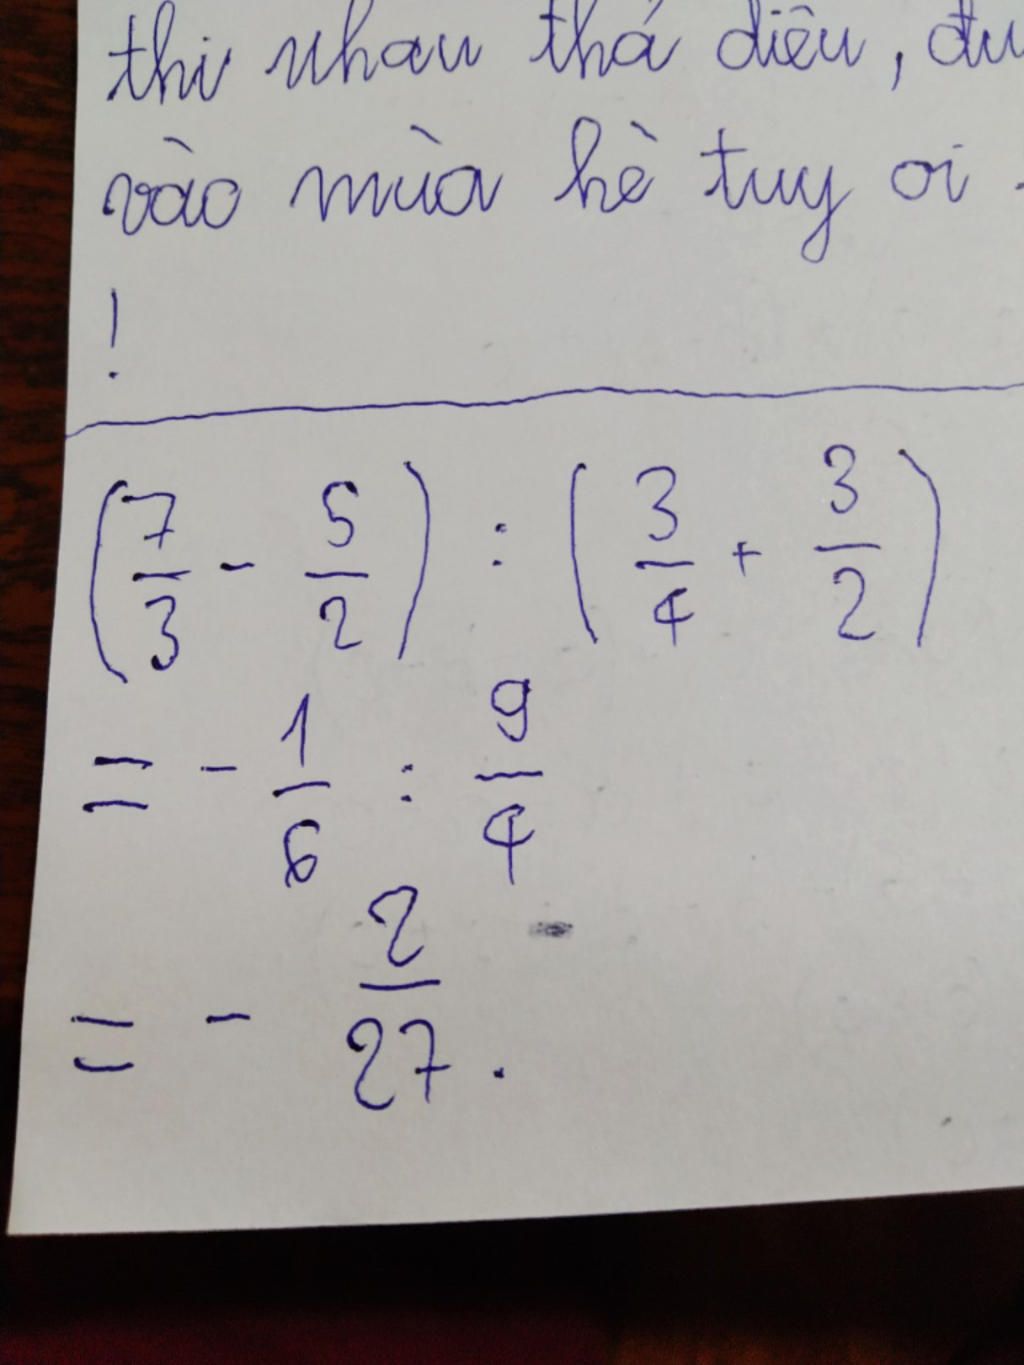 thi nhau thả diều, 
vào mùa hè tuy oi
!
(7/3 - 5/2) : (3/4 + 3/2)
= - 1/6 : 9/4
= - 2/27 .